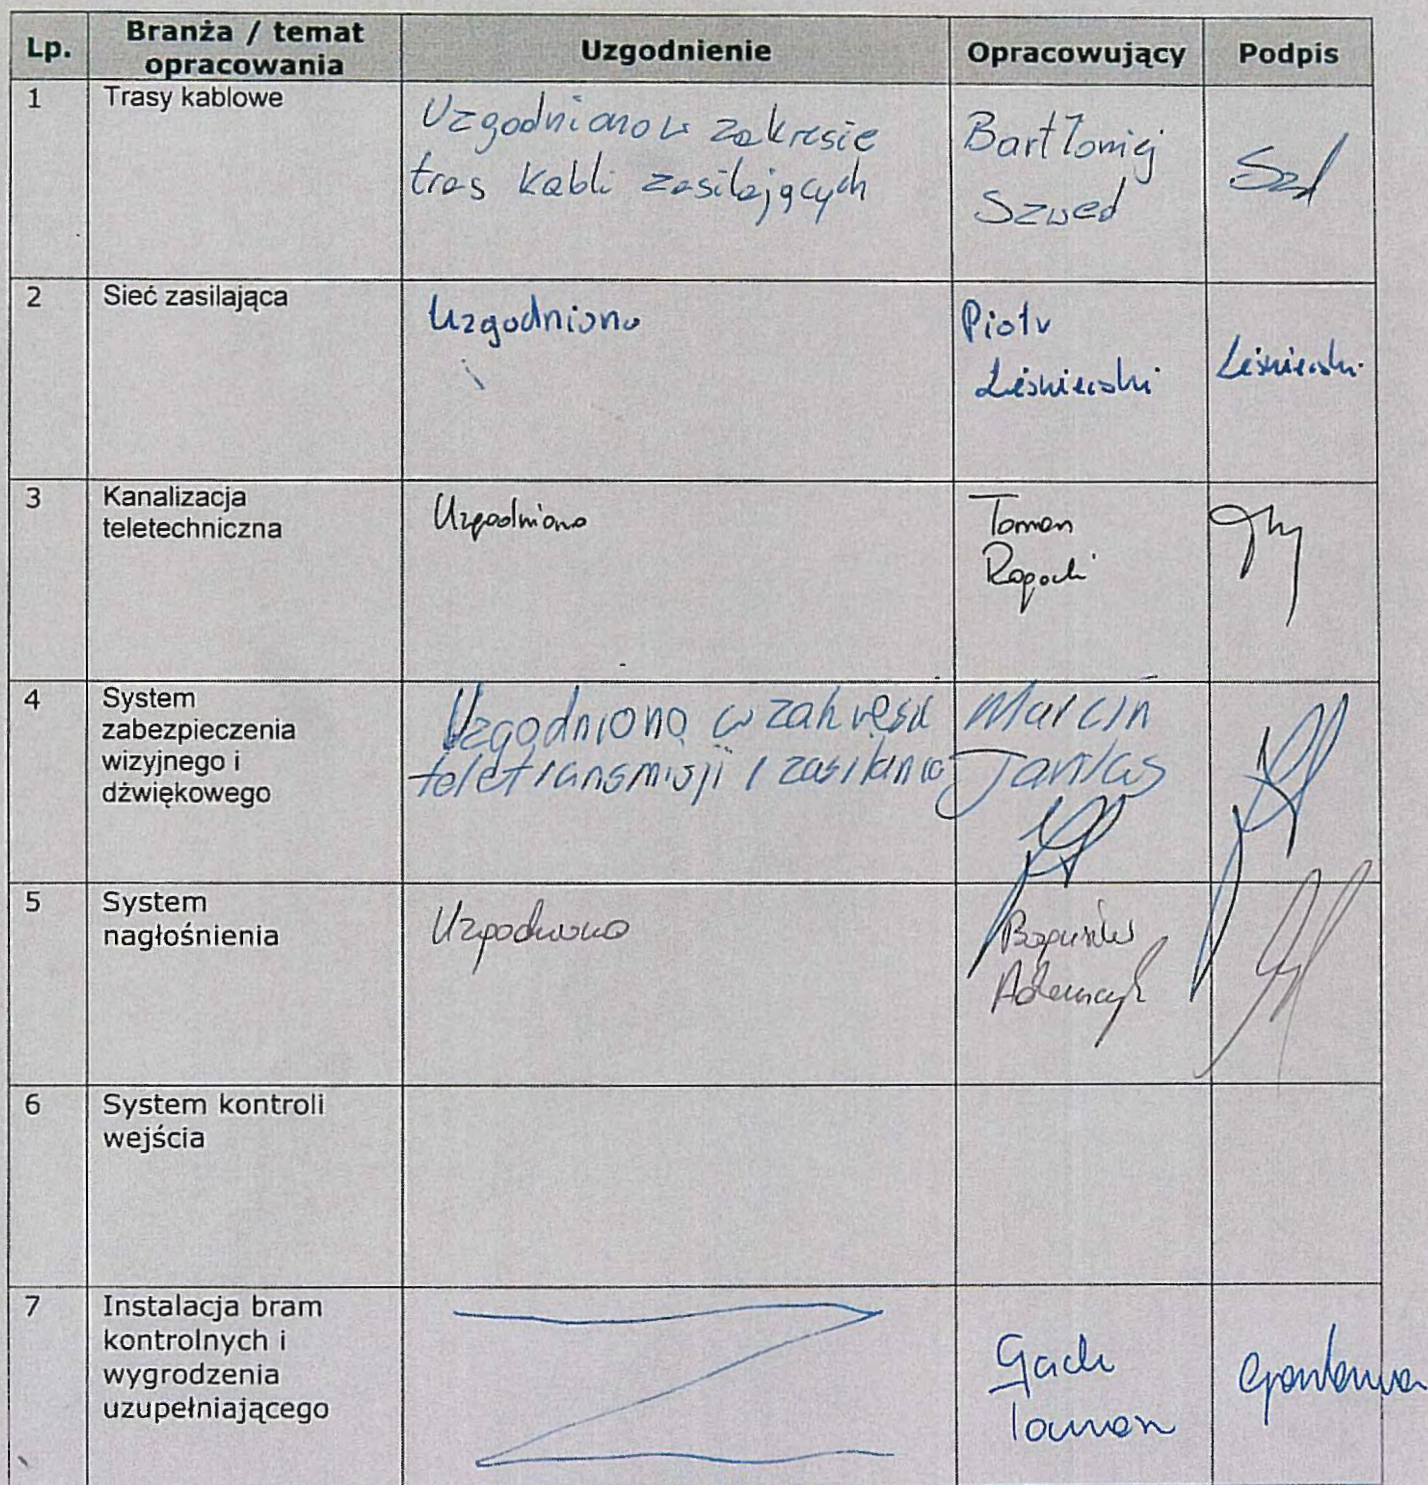 Lp. Branża / temat opracowania Uzgodnienie Opracowujący Podpis
1 Trasy kablowe
Uzgodniono w zakresie
tras kabli zasilających
Bartłomiej
Szwed
2 Sieć zasilająca
Uzgodniono
Piotr
Leśniewski
Leśniewski
3 Kanalizacja
teletechniczna
Uzgodniono
Tomasz
4 System
zabezpieczenia
wizyjnego i
dźwiękowego
Uzgodniono w zakresie
teletransmisji i zasilania
Marcin
Jankas
5 System
nagłośnienia
Uzgodniono
Bogusław
Adamczyk
6 System kontroli
wejścia
7 Instalacja bram
kontrolnych i
wygrodzenia
uzupełniającego
Gach
Tomasz